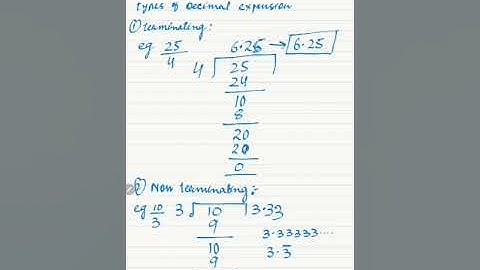 Types of Decimal expansion
① Terminating:
eg 25/4 6.25 → 6.25
4 25
24
10
8
20
20
0
② Non terminating:-
eg 10/3 3 10 3.33
9 3.33333....
10 3.3̅
9